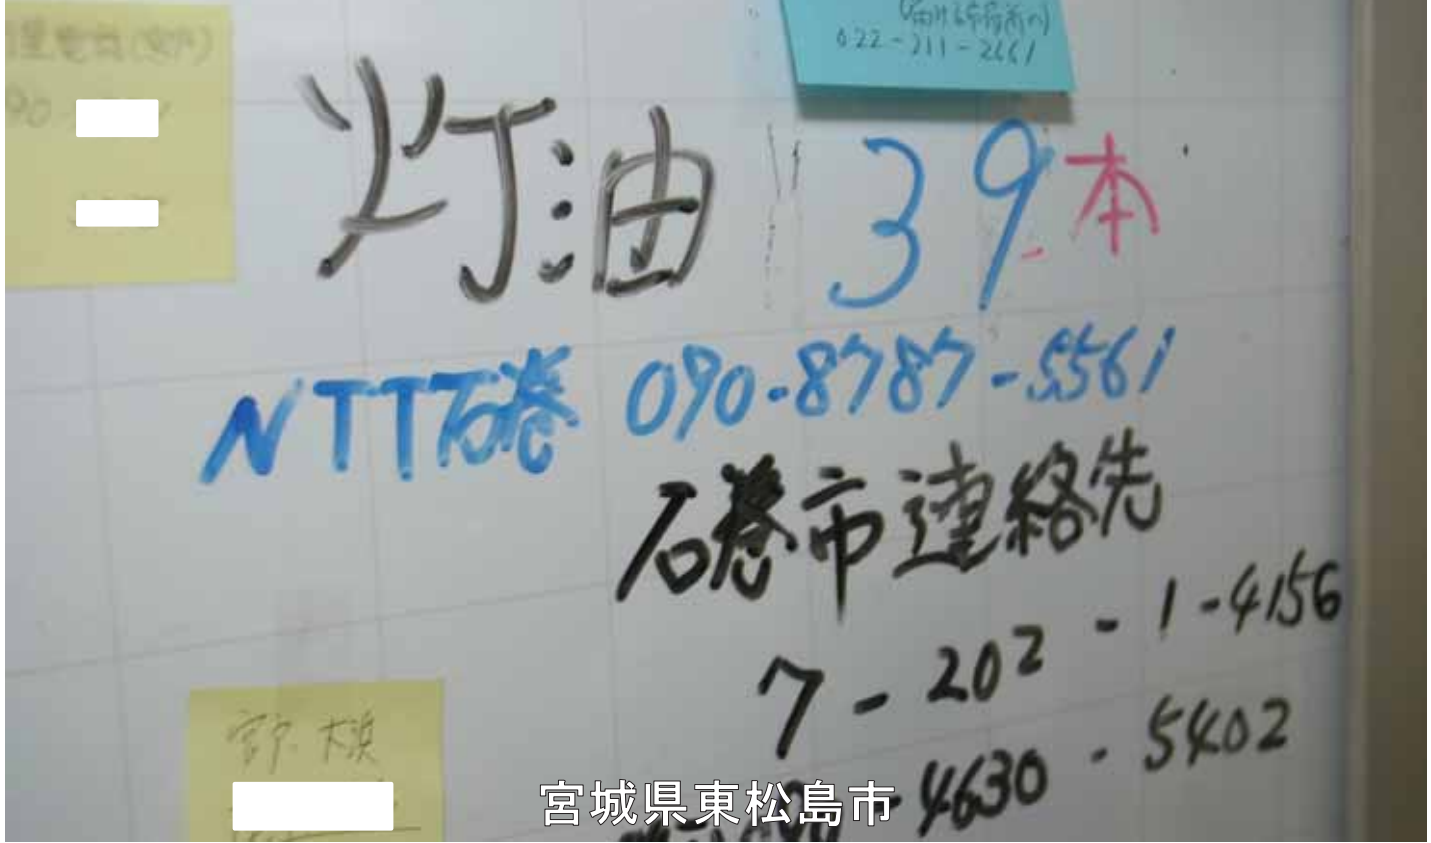 022-211-2661
灯油 39本
NTT石巻 090-8787-5561
石巻市連絡先
7-202-1-4156
4630-5402
宮戸 大浜
宮城県東松島市